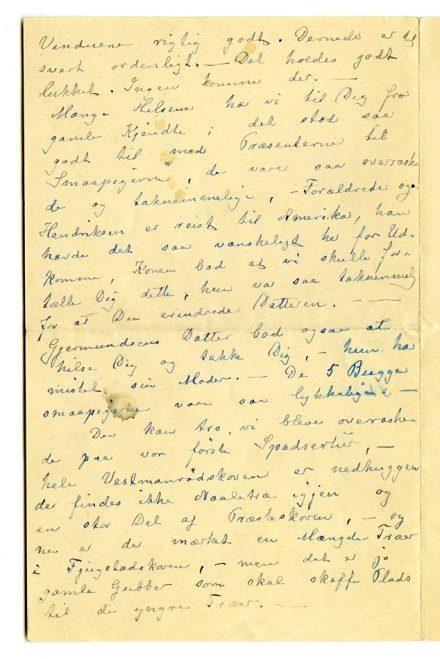 Vinduene rigtig godt. Dernede er det
svært ordenligt. — Det holdes godt
lukket. Ingen komme der. —
Mange Hilsener har vi til Dig fra
gamle Kjendte i det stod saa
godt til med Præsenterne til
Smaapigerne, de vare saa overraske
de og taknemmelige, — Forældrene og.
Hendriksen er reist til Amerika, han
havde det saa vanskeligt her for Ud-
komme, Konen bad at vi skulle for-
tælle Dig dette, hun var saa taknemmelig
for at Du erindrede Datteren. —
Gjermundsens Datter bad ogsaa at
hilse Dig og takke Dig, — hun har
mistet sin Moder. — De 5 Bugge
smaapigerne vare saa lykkelige —
Du kan tro, vi bleve overraske
de paa vor første Spadsertur, —
hele Vestmanrødskoven er nedhuggen
der findes ikke Naaletræ igjen og
en stor Del af Præsteskoven, — og
nu er der mærket en Mængde Træer
i Fjugstadskoven, — men det er jo
gamle Gubber som skal skaffe Plads
til de yngre Træer. —